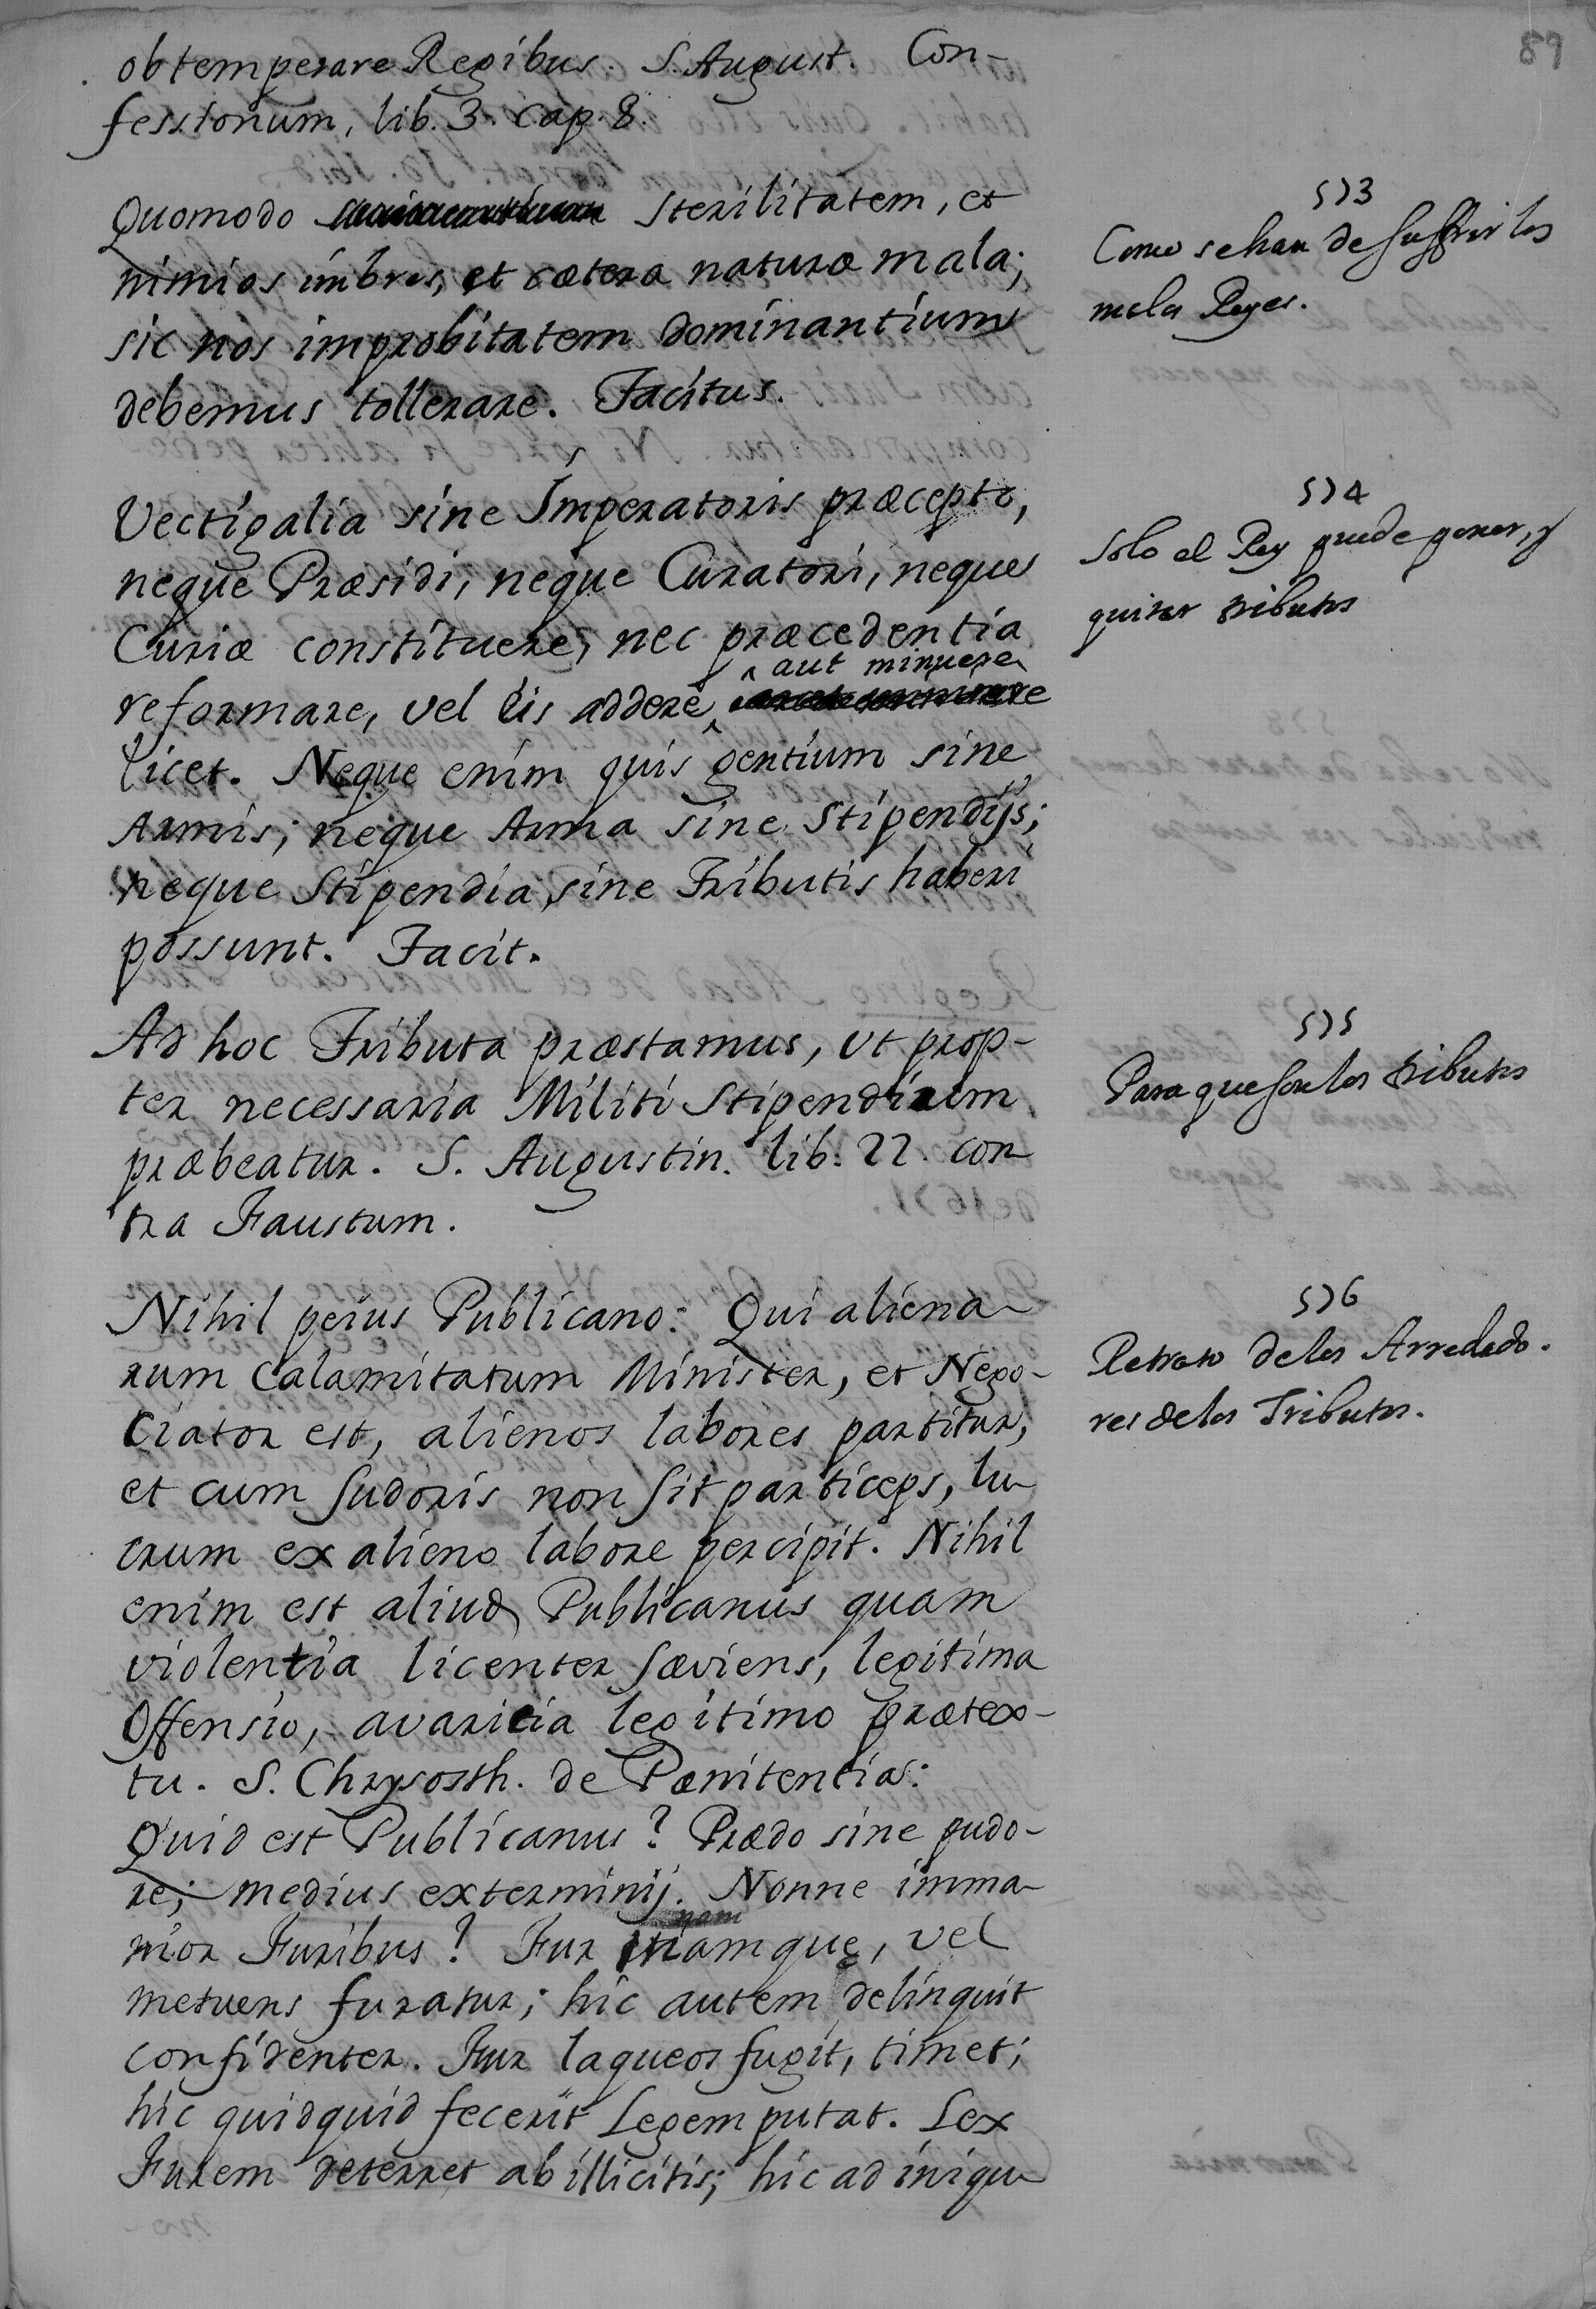 89
obtemperare Regibus. S. August. Con-
fessionum, lib. 3. cap. 8.
Quomodo sterilitatem, et
nimios imbres, et cætera naturæ mala;
sic nos improbitatem dominantium
debemus tollerare. Tacitus.
573
Como se han de suffrir los
malos Reyes.
Vectigalia sine Imperatoris præcepto,
neque Præsidi, neque Curatori, neque
Curiæ constituere, nec præcedentia
aut minuere
reformare, vel eis addere
licet. Neque enim quis gentium sine
Armis; neque Arma sine Stipendijs;
neque Stipendia, sine Tributis haberi
possunt. Tacit.
574
Solo el Rey puede poner, y
quitar tributos
Ad hoc Tributa præstamus, ut prop-
ter necessaria Militi Stipendium
præbeatur. S. Augustin. lib. 22. con
tra Faustum.
575
Para que son los tributos
Nihil peius Publicano: Qui aliena-
rum calamitatum Minister, et Nego-
ciator est, alienos labores partitur,
et cum sudoris non sit particeps, lu-
crum ex alieno labore percipit. Nihil
enim est aliud Publicanus quam
violentia licenter sæviens, legitima
Offensio, avaricia legitimo prætex-
tu. S. Chrysosth. de Pænitentia:
Quid est Publicanus? Prædo sine pudo-
re; medius exterminij. Nonne imma-
nior Furibus? Fur namque, vel
metuens furatur; hic autem delinquit
confidenter. Fur laqueos fugit, timet;
hic quidquid fecerit Legem putat. Lex
Furem deterret ab illicitis; hic ad iniqu-
576
Retrato de los Arrededo-
res de los Tributos.